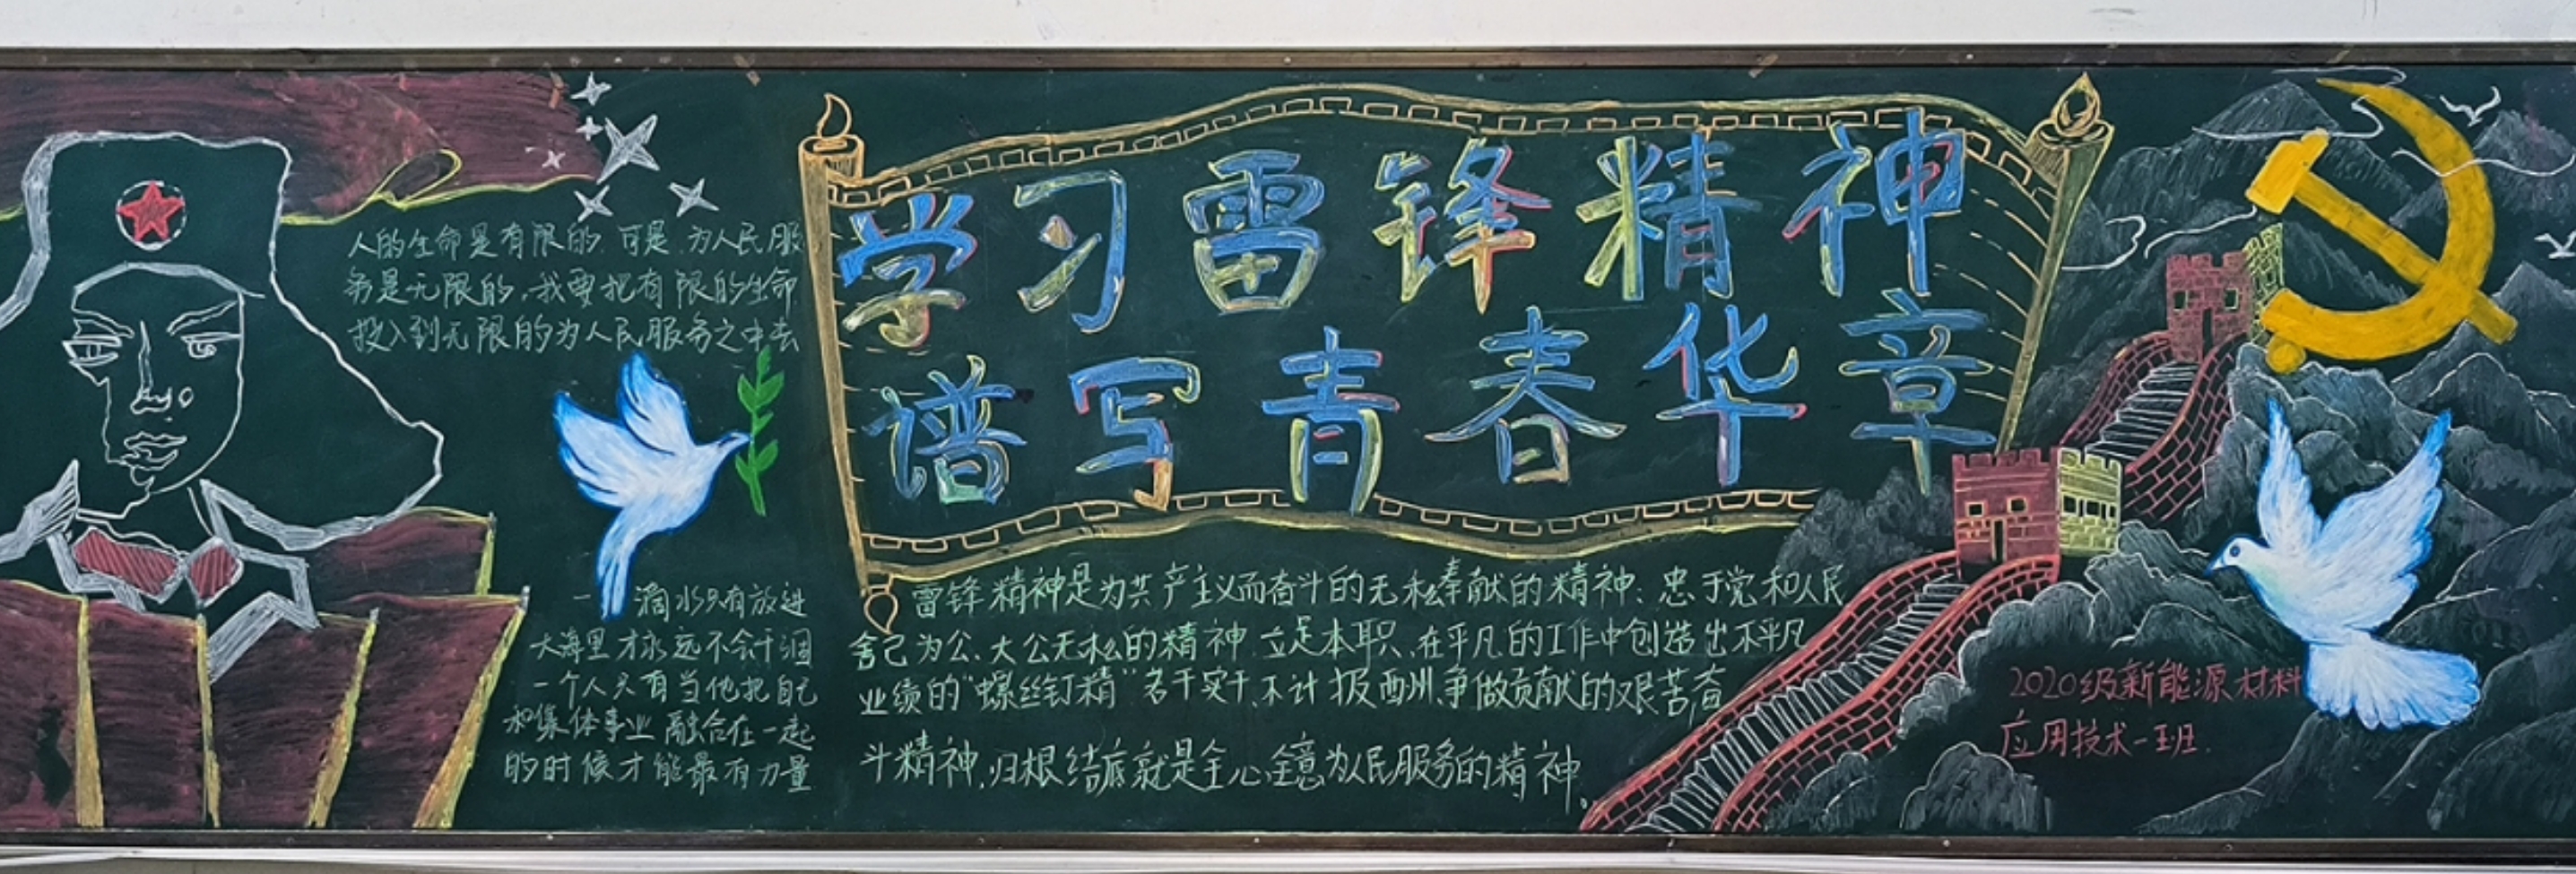 人的生命是有限的.可是.为人民服
务是无限的,我要把有限的生命
投入到无限的为人民服务之中去
一滴水只有放进
大海里才永远不会干涸
一个人只有当他把自己
和集体事业融合在一起
的时候才能最有力量
学习雷锋精神
谱写青春华章
雷锋精神是为共产主义而奋斗的无私奉献的精神;忠于党和人民
舍己为公、大公无私的精神.立足本职、在平凡的工作中创造出不平凡
业绩的“螺丝钉精”苦干实干、不计报酬、争做贡献的艰苦奋
斗精神,归根结底就是全心全意为人民服务的精神。
2020级新能源材料
应用技术一班.